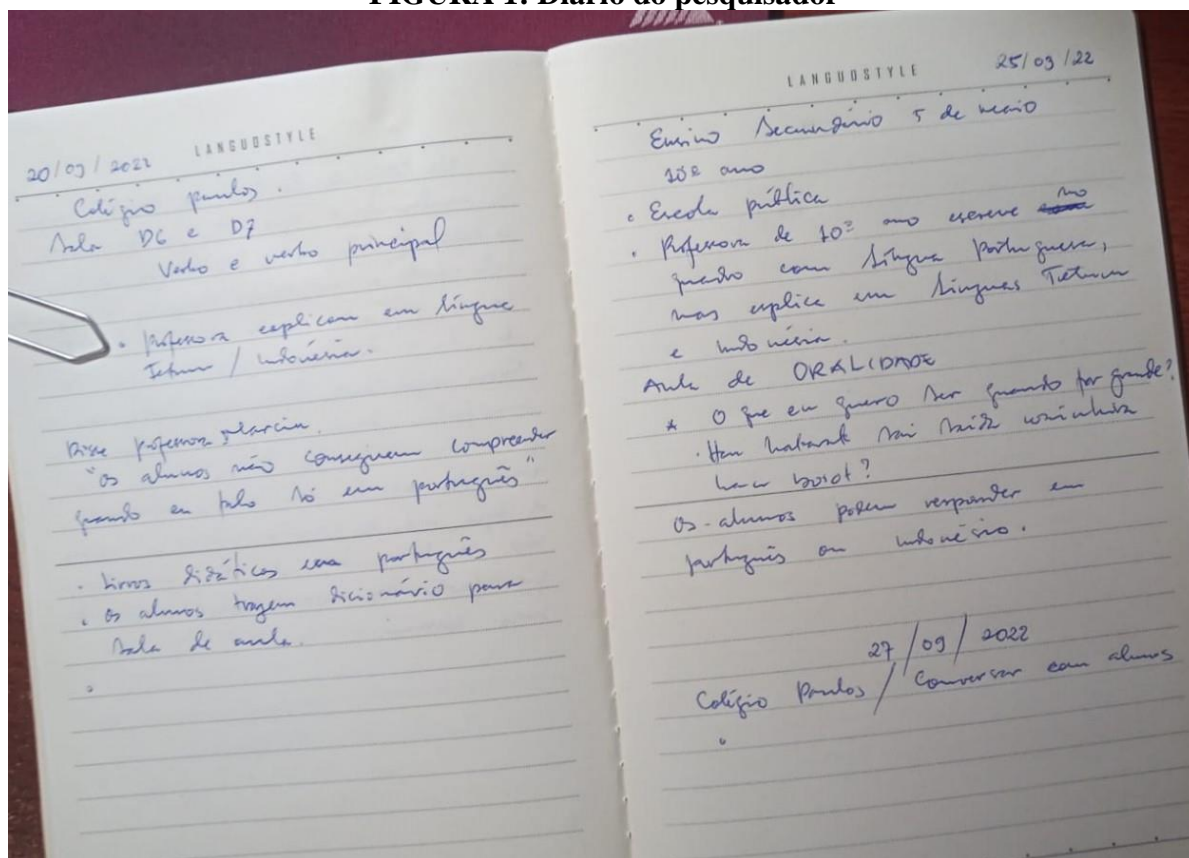 FIGURA 1: Diário do pesquisador
LANGUOSTYLE
20/09/2022
Colégio Paulos.
Sala D6 e D7
Verbo e verbo principal
• Professora explicam em língua
Tetum / indonésia.
Disse professora Marcia.
"os alunos não conseguem compreender
quando eu falo só em português"
• Livros didáticos em português
• os alunos trazem dicionário para
sala de aula.
LANGUOSTYLE
25/09/22
Ensino Secundário 5 de maio
10º ano
• Escola pública
• Professora de 10º ano escreve no
quadro com língua portuguesa,
mas explica em línguas Tetum
e indonésia.
Aula de ORALIDADE
* O que eu quero ser quando for grande?
• Hau hakarak sai saida wainhira
hau boot?
Os alunos podem responder em
português ou indonésio.
27/09/2022
Colégio Paulos / Conversar com alunos